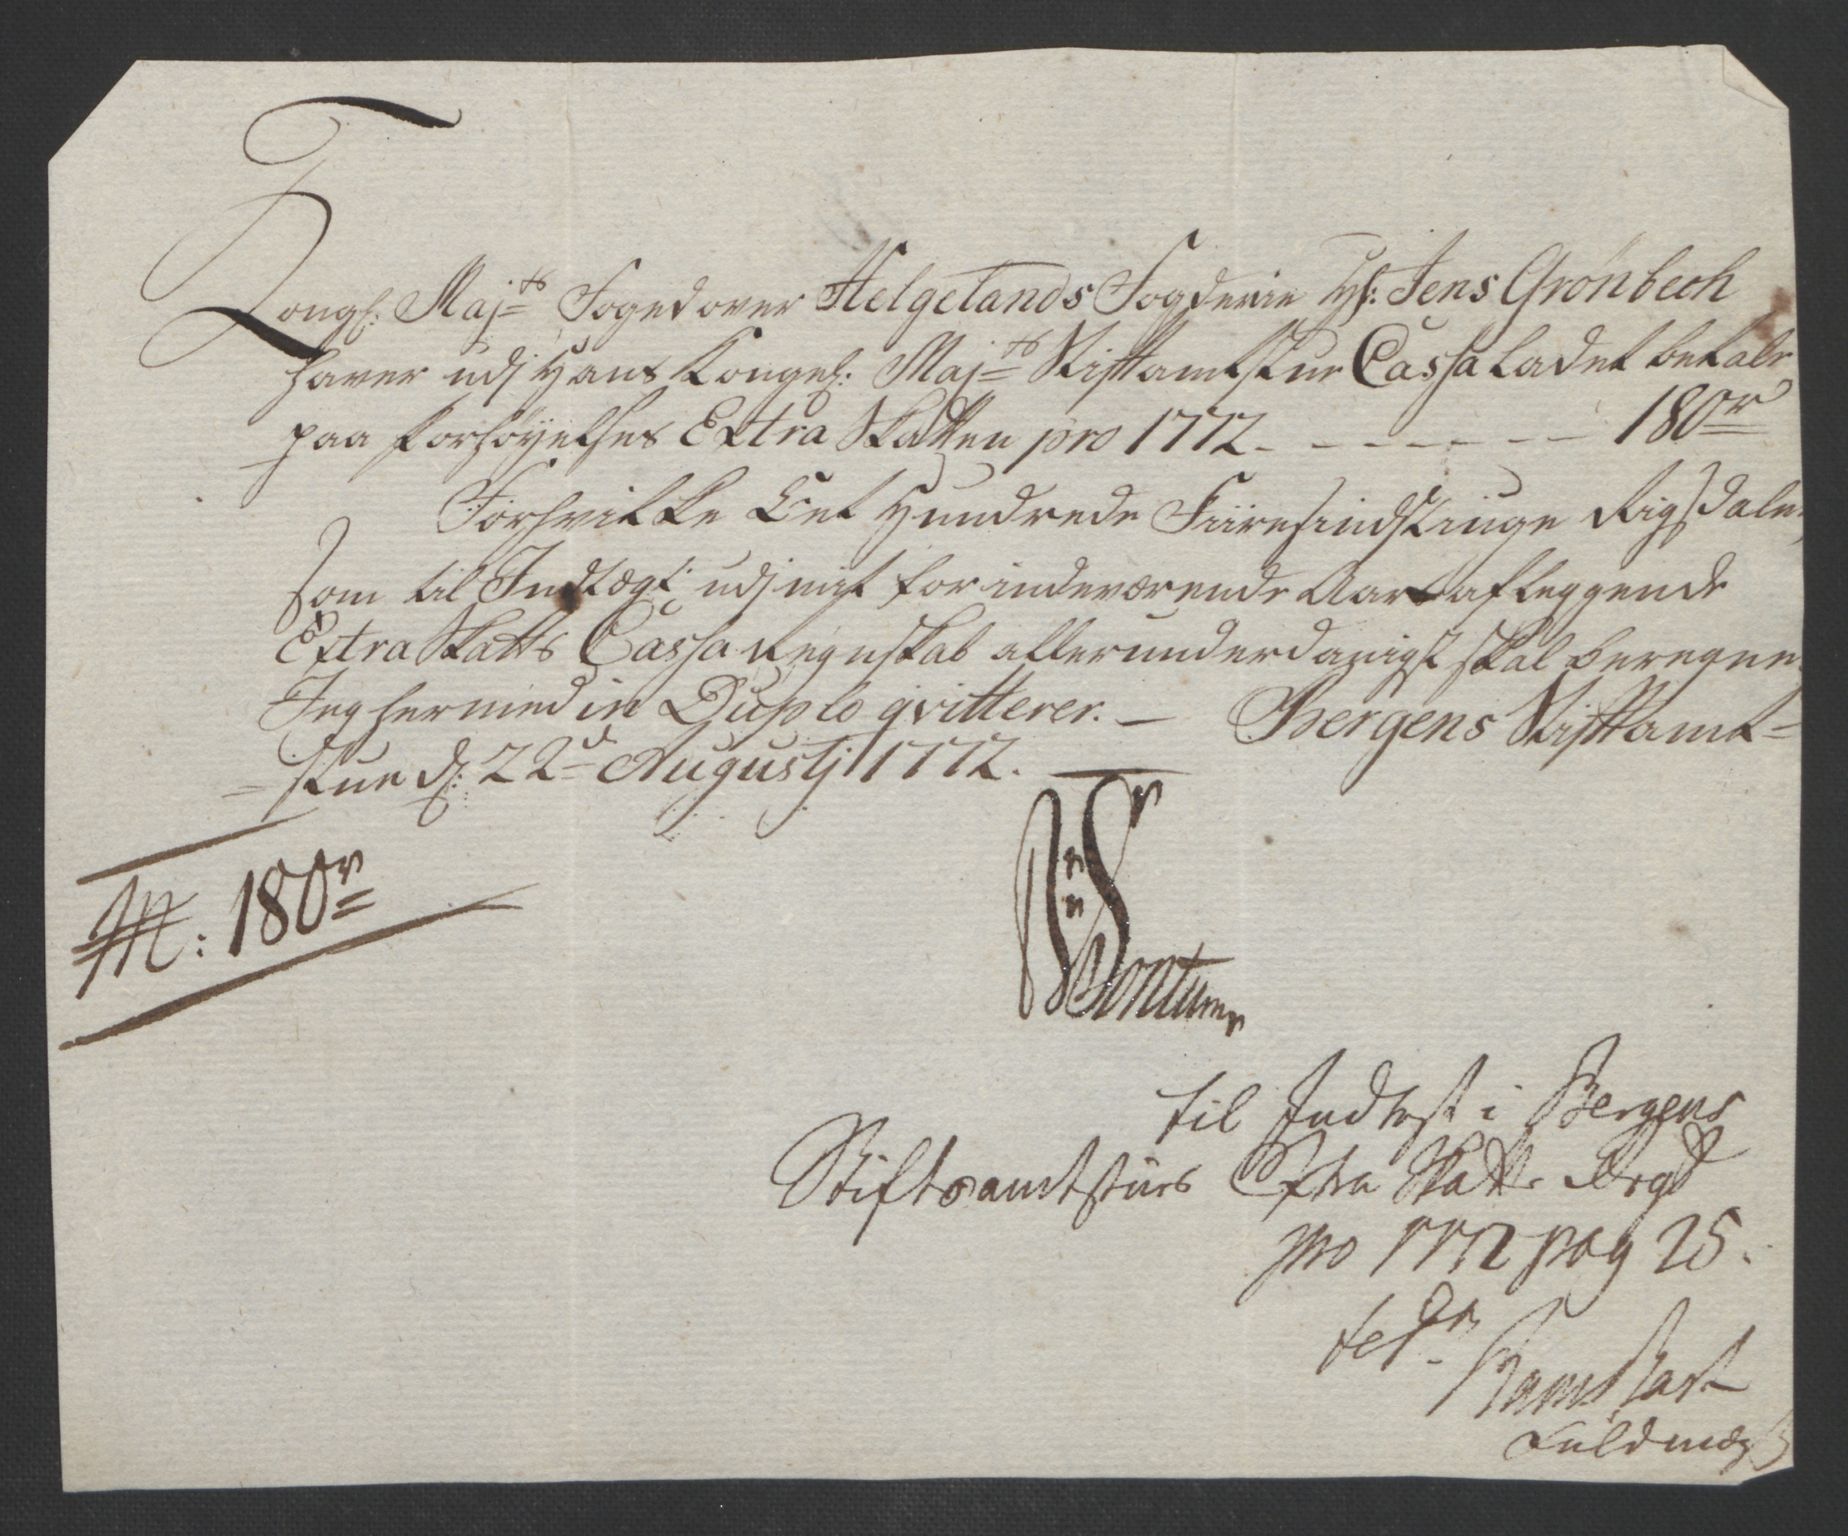 Kongel: Maj:ts Foged over Helgelands Fogderie Hr: Jens Grönbech
haver udj Hans Kongel: Maj:ts Stiftamtstue Cassa Ladet betale
paa Forhöyelses Extra Skatten pro 1772. - - - - - - - 180 r
Forhvilke Eet Hundrede Fiiresindstiuge Rigsdaler,
som til Indtægt udj mit for indeværende Aar aflæggende
Extra Skatts Cassa Regnskab allerunderdanigst skal beregne,
Jeg hermed in Duplo qvitterer. — Bergens Stiftamt=
=stue d: 22d Augustj 1772.
180 r
til Indtægt i Bergens
Stiftsamtstues Extra Skatte
pro 1772 pag 25.
Fuldmægt